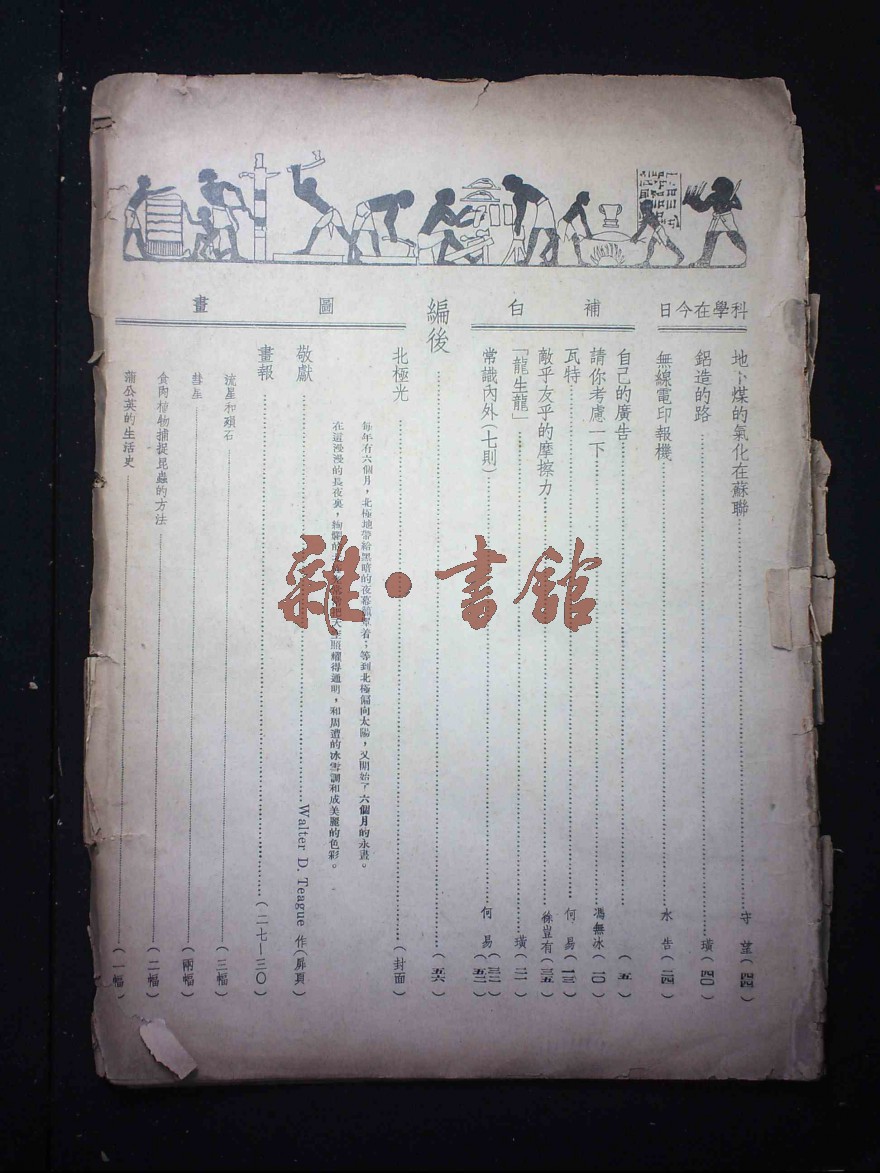 科學在今日
地下煤的氣化在蘇聯……守望(四四)
鋁造的路……璜(四〇)
無線電印報機……水告(二四)
補白
自己的廣告……(五)
請你考慮一下……馮無冰(一〇)
瓦特……何易(一三)
敵乎友乎的摩擦力……徐豈有(三五)
「龍生龍」……璜(二一)
常識內外(七則)……何易(三二)(五二)
編後……(五六)
圖畫
北極光……(封面)
每年有六個月，北極地帶給黑暗的夜幕籠罩着；等到北極偏向太陽，又開始了六個月的永晝。
在這漫漫的長夜裏，絢爛的 照耀得通明，和周遭的冰雪調和成美麗的色彩。
敬獻……Walter D. Teague 作(扉頁)
畫報……(二七—三〇)
流星和隕石……(三幅)
彗星……(兩幅)
食肉植物捕捉昆蟲的方法……(二幅)
蒲公英的生活史……(一幅)
雜·書館